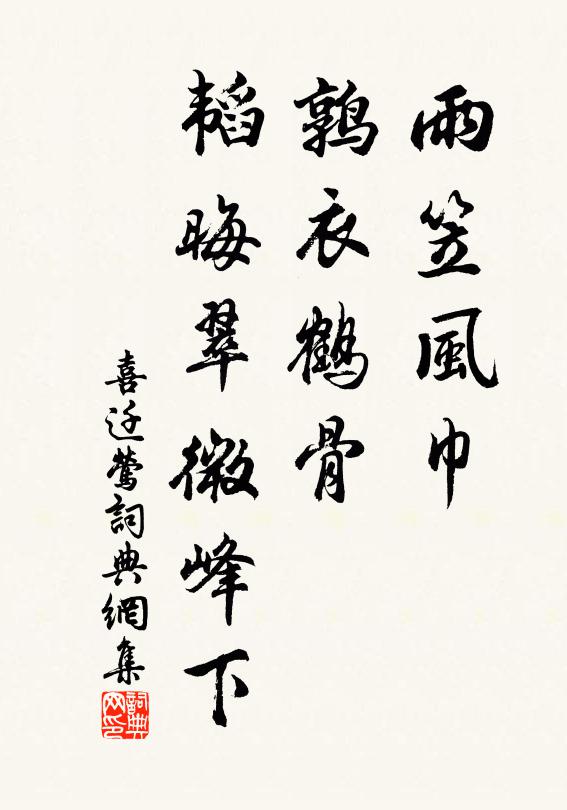 雨笠風巾
鹑衣鶴骨
韬晦翠微峰下
喜迁莺詞典網集
詞典网印